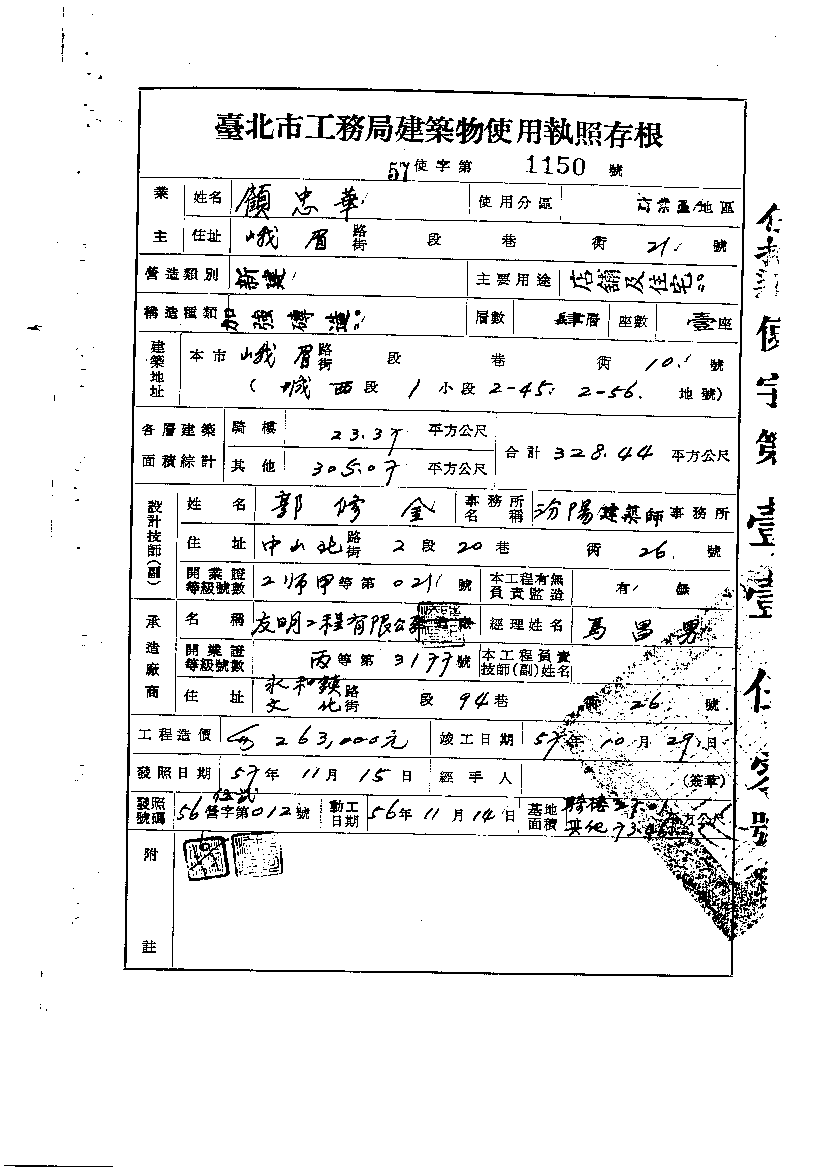 臺北市工務局建築物使用執照存根
57使字第 1150 號
業主 姓名 顧忠華 使用分區 商業區地區
住址 峨眉 路街 段 巷 衖 21 號
營造類別 新建 主要用途 店舖及住宅
構造種類 加強磚造 層數 層 座數 壹座
建築地址 本市 峨眉 路街 段 巷 衖 10 號
( 城西段 1 小段 2-45. 2-56. 地號)
各層建築面積綜計 騎樓 23.37 平方公尺 合計 328.44 平方公尺
其他 305.07 平方公尺
設計技師(副) 姓名 郭修金 事務所名稱 汾陽建築師事務所
住址 中山北 路街 2 段 20 巷 衖 26 號
開業證等級號數 2師甲等第021號 本工程有無負責監造 有 無
承造廠商 名稱 友明工程有限公司 經理姓名 馬昌男
開業證等級號數 丙等第3177號 本工程負責技師(副)姓名
住址 永和鎮文化 路街 段 94巷 衖 26 號
工程造價 263,000元 竣工日期 57年10月29日
發照日期 57年11月15日 經手人 (簽章)
發照號碼 56營字第012號 動工日期 56年11月14日 基地面積 騎樓 其他 平方公尺
附註
使字第壹壹